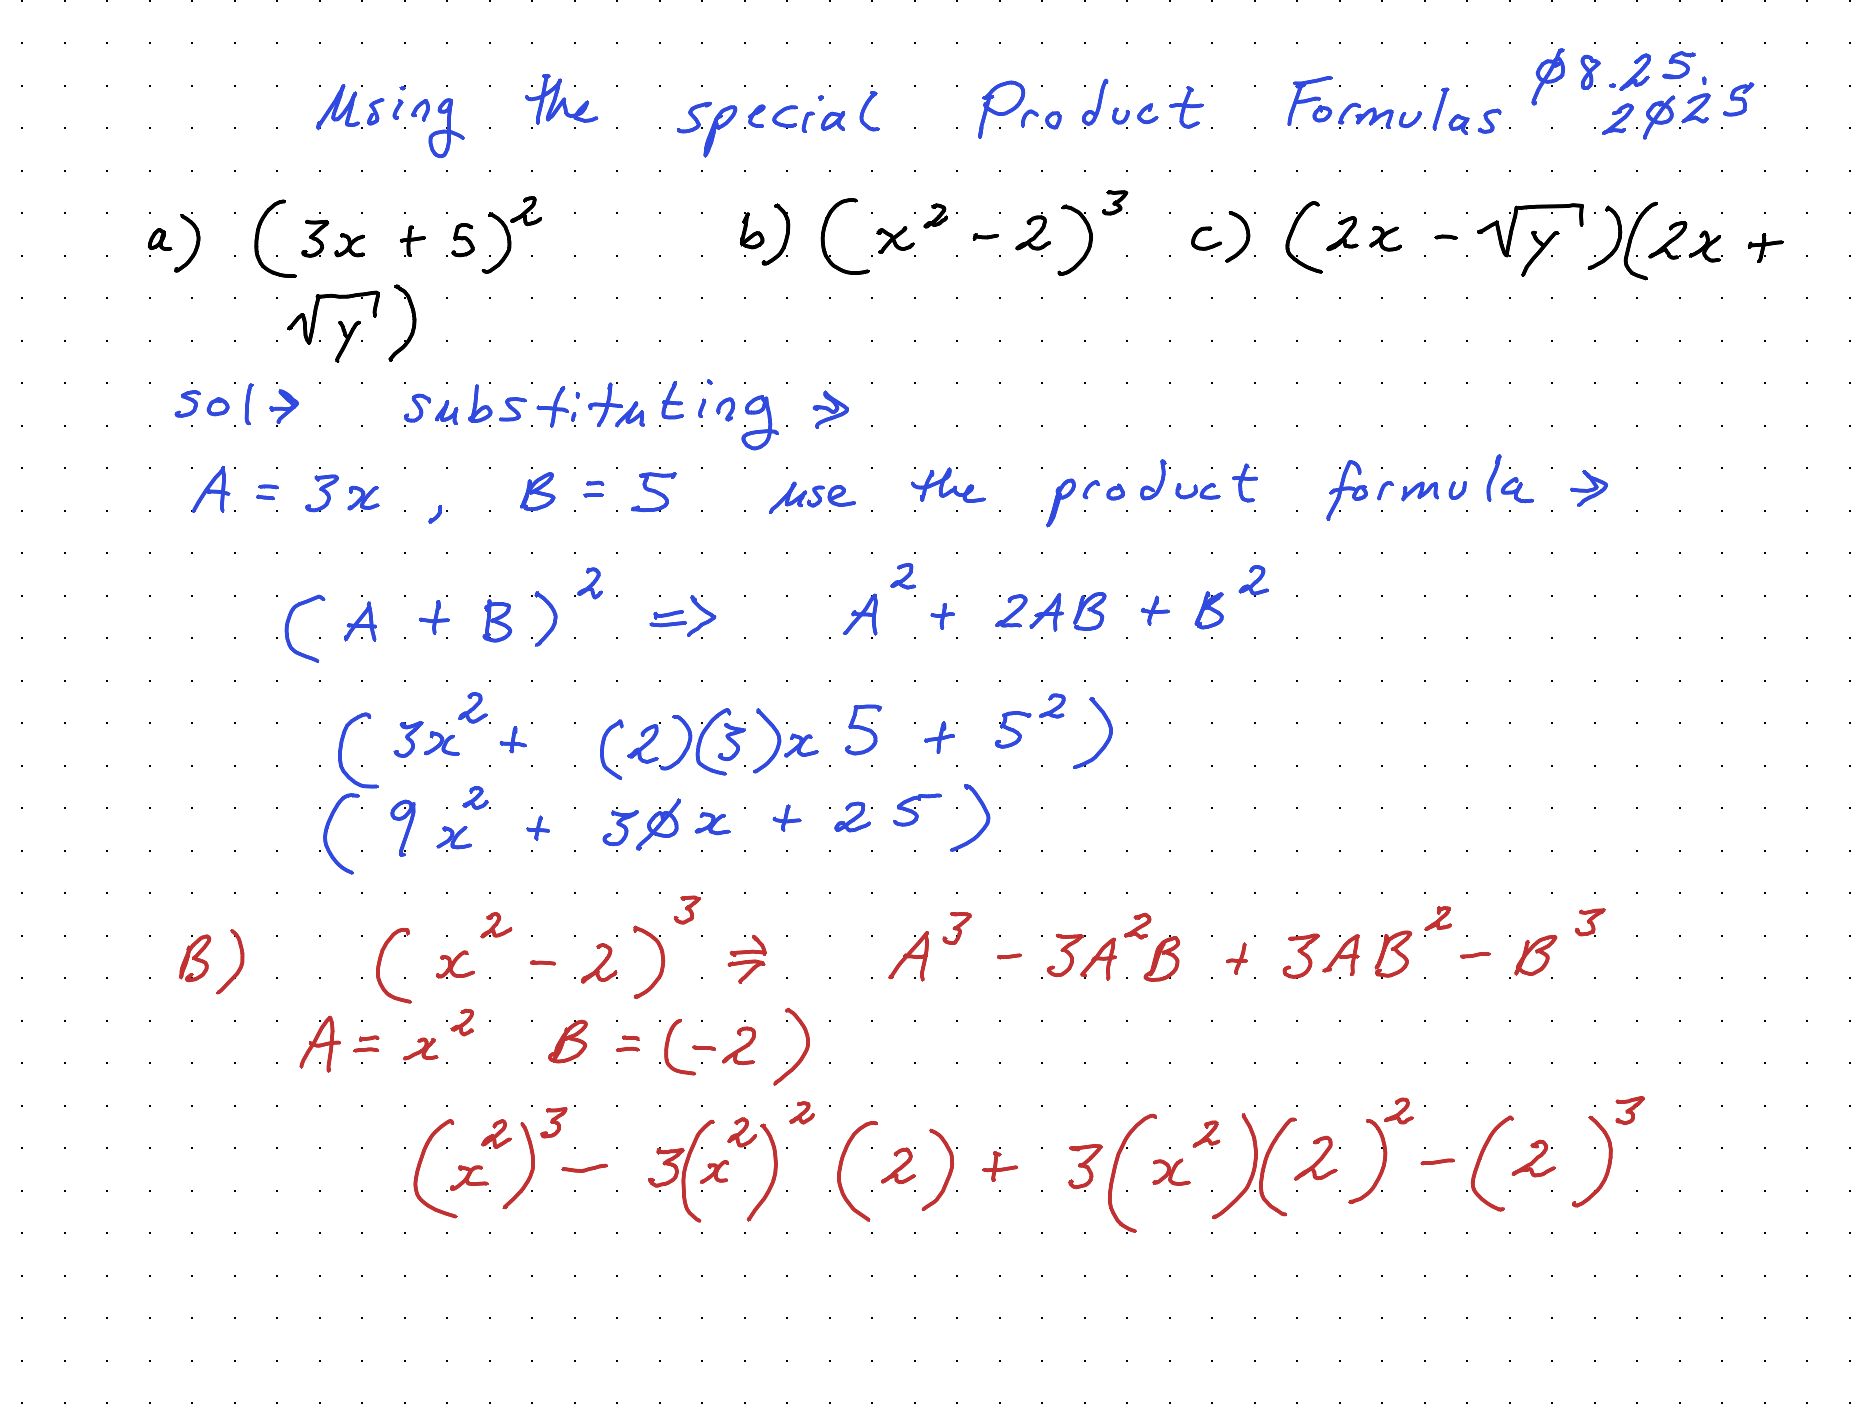 Using the special Product Formulas Ø8.25.2Ø25
a) (3x + 5)² b) (x² - 2)³ c) (2x - √y)(2x +
√y)
sol→ substituting ⇒
A = 3x, B = 5 use the product formula ⇒
(A + B)² => A² + 2AB + B²
(3x² + (2)(3)x 5 + 5²)
(9x² + 3Øx + 25)
B) (x² - 2)³ ⇒ A³ - 3A²B + 3AB² - B³
A = x² B = (-2)
(x²)³ - 3(x²)² (2) + 3(x²)(2)² - (2)³